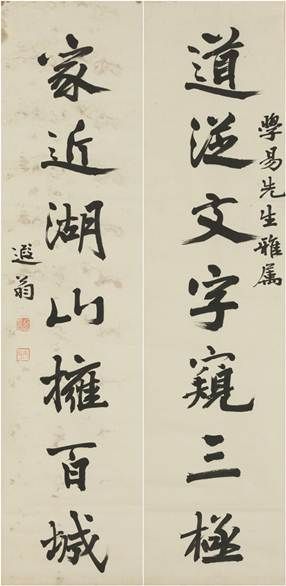 學易先生雅属
道從文字窺三極
家近湖山擁百城
遐翁